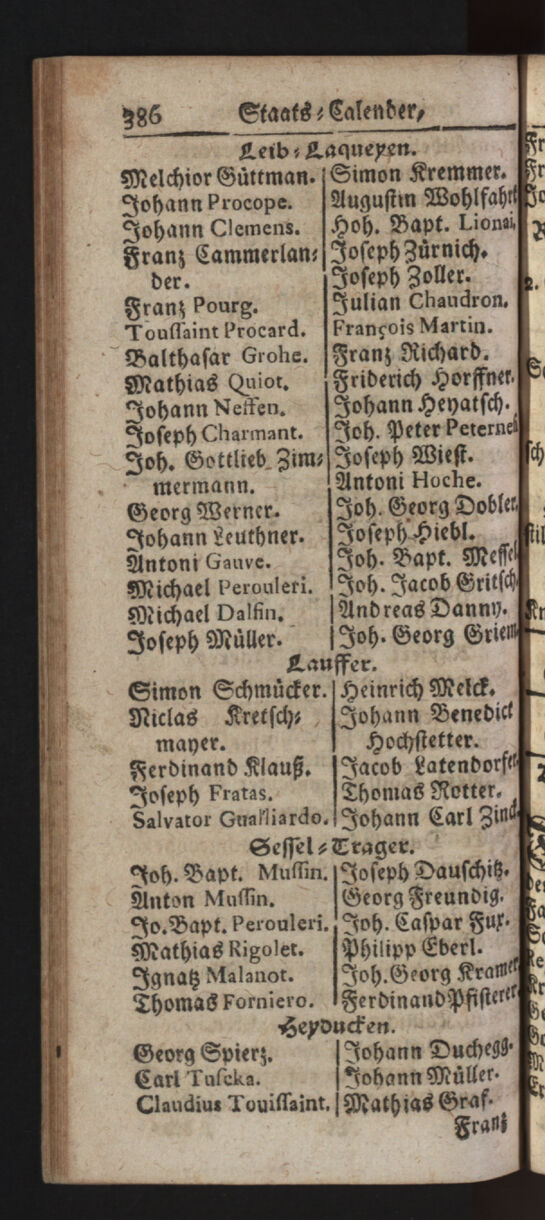 386 Staats-Calender,
Leib-Laqueyen.
Melchior Güttman.
Johann Procope.
Johann Clemens.
Franz Cammerlan-
der.
Franz Pourg.
Toussaint Procard.
Balthasar Grohe.
Mathias Quiot.
Johann Neffen.
Joseph Charmant.
Joh. Gottlieb Zim-
mermann.
Georg Werner.
Johann Leuthner.
Antoni Gauve.
Michael Perouleri.
Michael Dalfin.
Joseph Müller.
Simon Kremmer.
Augustin Wohlfahrt
Hoh. Bapt. Lionai,
Joseph Zürnich.
Joseph Zoller.
Julian Chaudron.
François Martin.
Franz Richard.
Friderich Horffner.
Johann Heyatsch.
Joh. Peter Peternell
Joseph Wiest.
Antoni Hoche.
Joh. Georg Dobler.
Joseph Hiebl.
Joh. Bapt. Messel
Joh. Jacob Gritsch
Andreas Danny.
Joh. Georg Griem
Lauffer.
Simon Schmücker.
Niclas Kretsch-
mayer.
Ferdinand Klauß.
Joseph Fratas.
Salvator Gualliardo.
Heinrich Melck.
Johann Benedict
Hochstetter.
Jacob Latendorfer
Thomas Rotter.
Johann Carl Zinck
Sessel-Trager.
Joh. Bapt. Mussin.
Anton Mussin.
Jo. Bapt. Perouleri.
Mathias Rigolet.
Ignatz Malanot.
Thomas Forniero.
Joseph Dauschitz.
Georg Freundig.
Joh. Caspar Fux.
Philipp Eberl.
Joh. Georg Kramer
Ferdinand Pfisterer
Heyducken.
Georg Spierz.
Carl Tuscka.
Claudius Touissaint.
Johann Duchegg.
Johann Müller.
Mathias Graf.
Franz